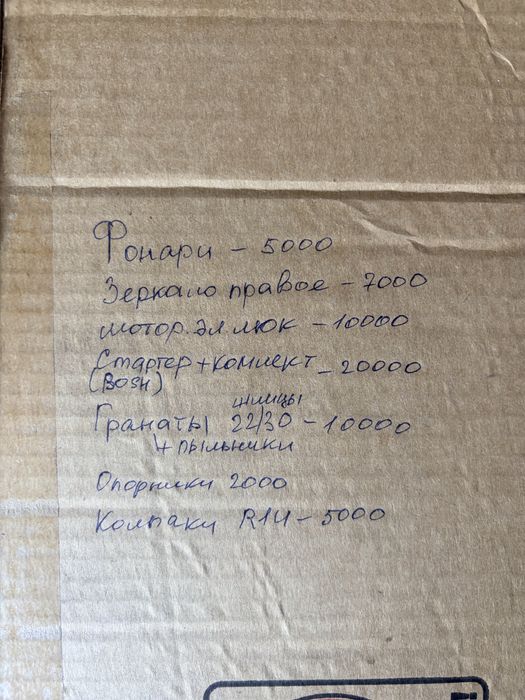 Фонари - 5000
Зеркало правое - 7000
мотор.эл.люк - 10000
Стартер + комлект - 20000
(BOSH)
шлицы
Гранаты 22/30 - 10000
+ пыльники
Опорники 2000
Колпаки R14 - 5000